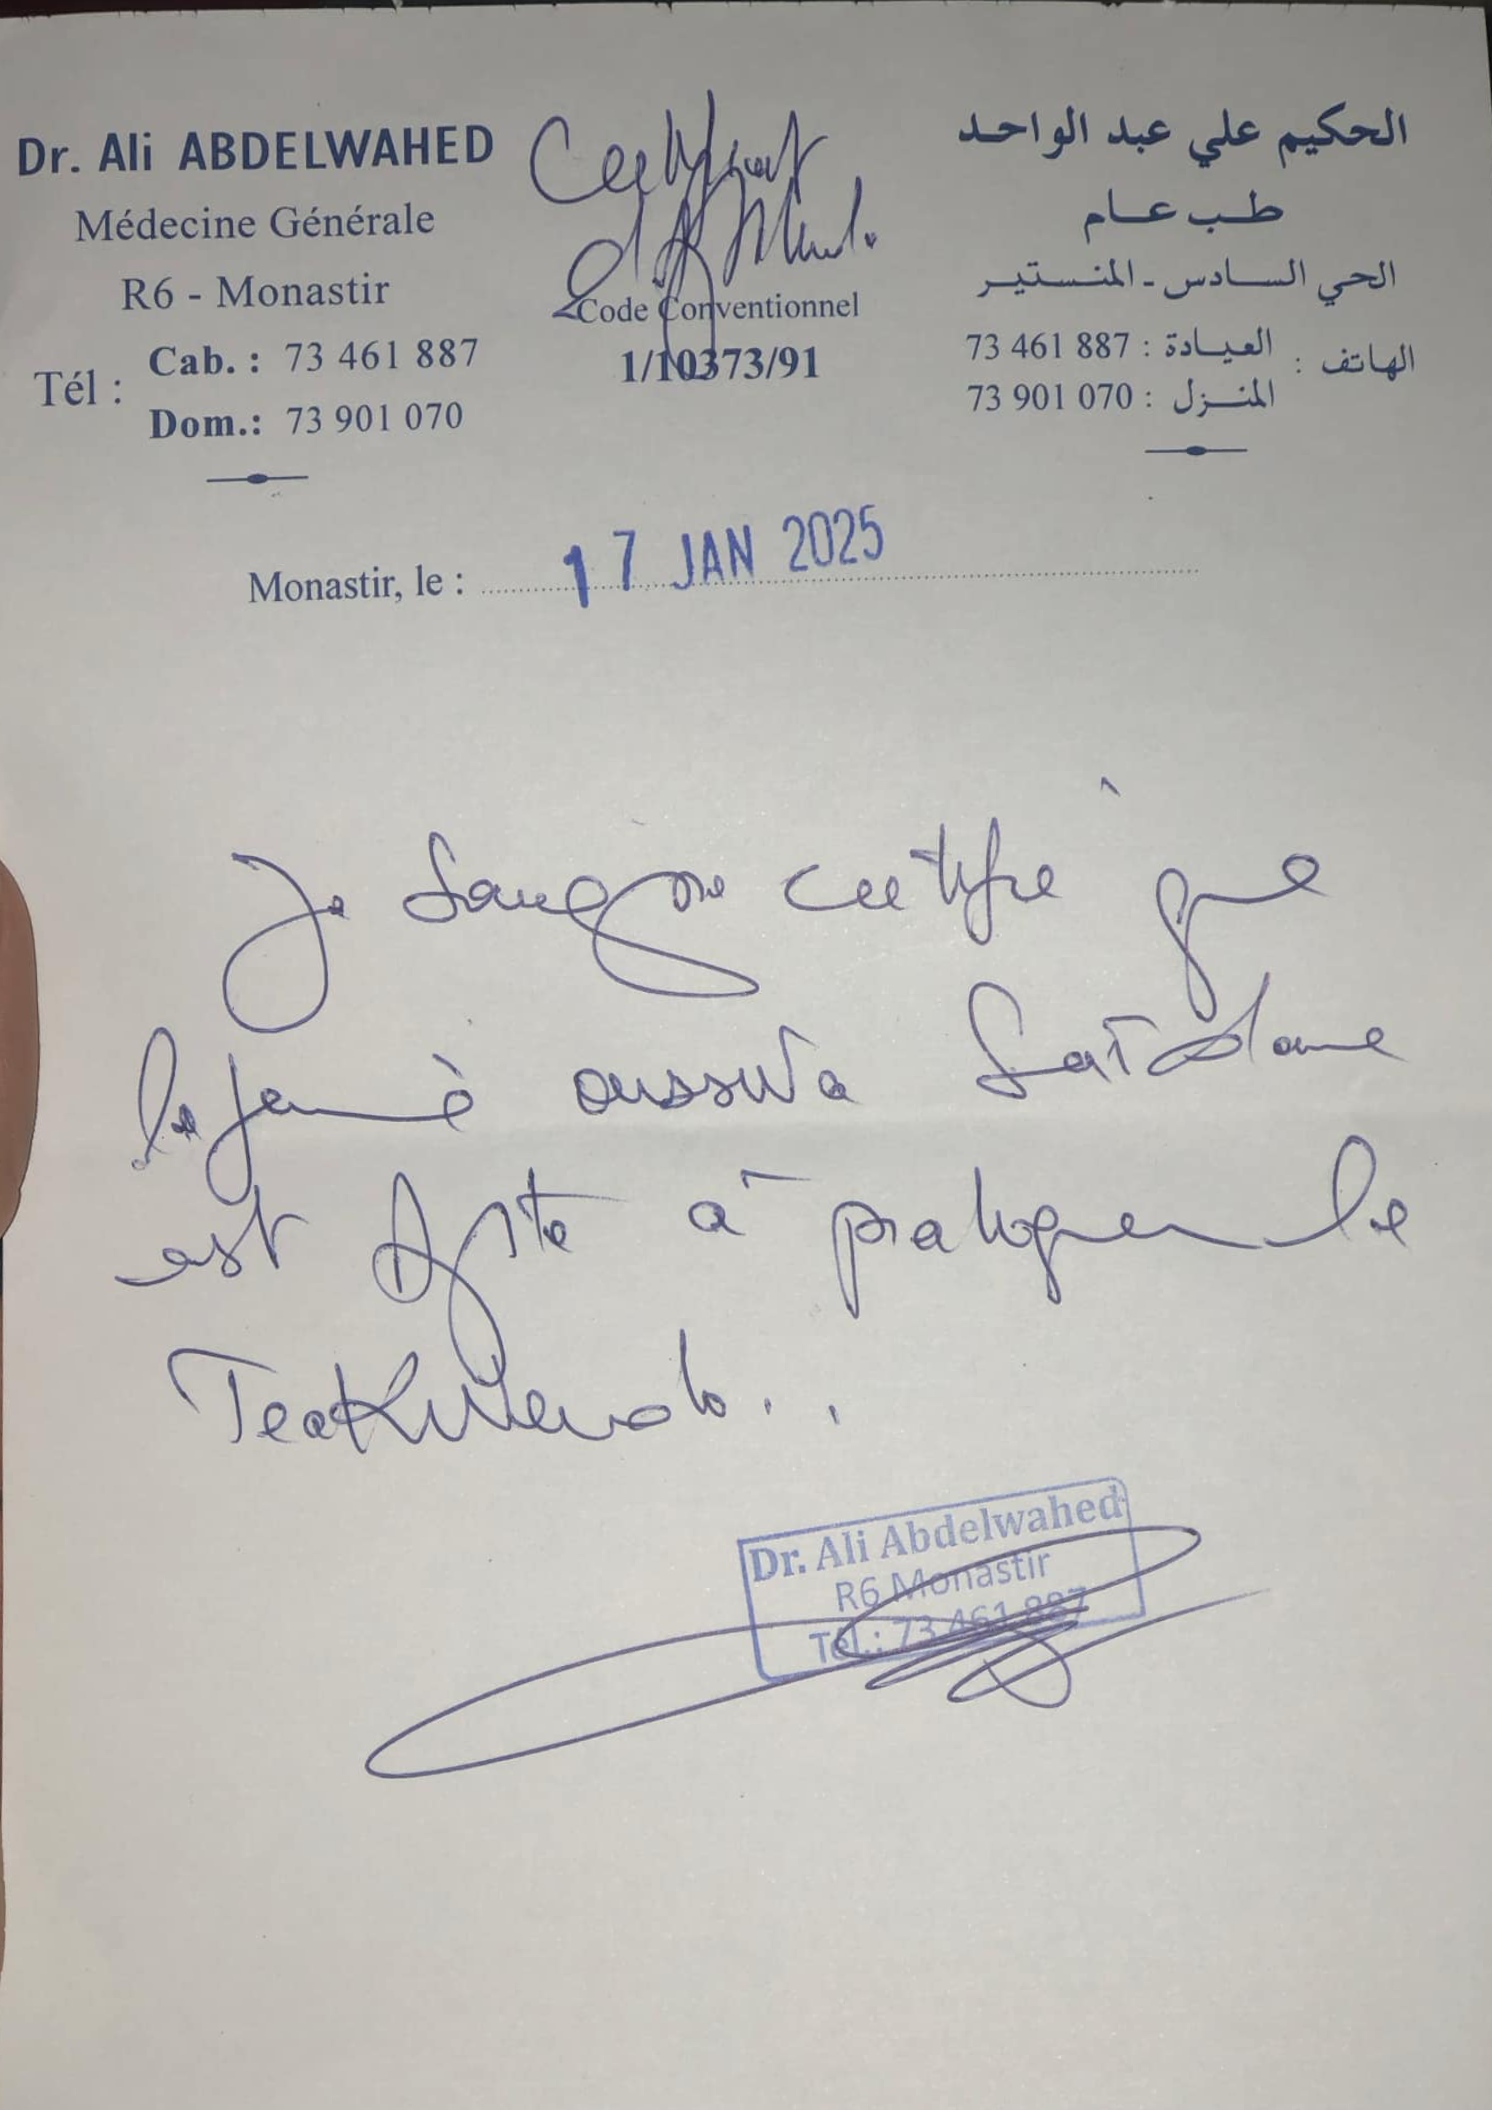 Dr. Ali ABDELWAHED
Médecine Générale
R6 - Monastir
Tél :
Cab. : 73 461 887
Dom.: 73 901 070
Certificat
d'Aptitude.
Code Conventionnel
1/10373/91
الحكيم علي عبد الواحد
طب عام
الحي السادس - المنستير
الهاتف :
العيادة : 73 461 887
المنزل : 73 901 070
Monastir, le : 17 JAN 2025
Je certifie que
le
est Apte à pratiquer le
Dr. Ali Abdelwahed
R6 Monastir
Tél.: 73 461 887